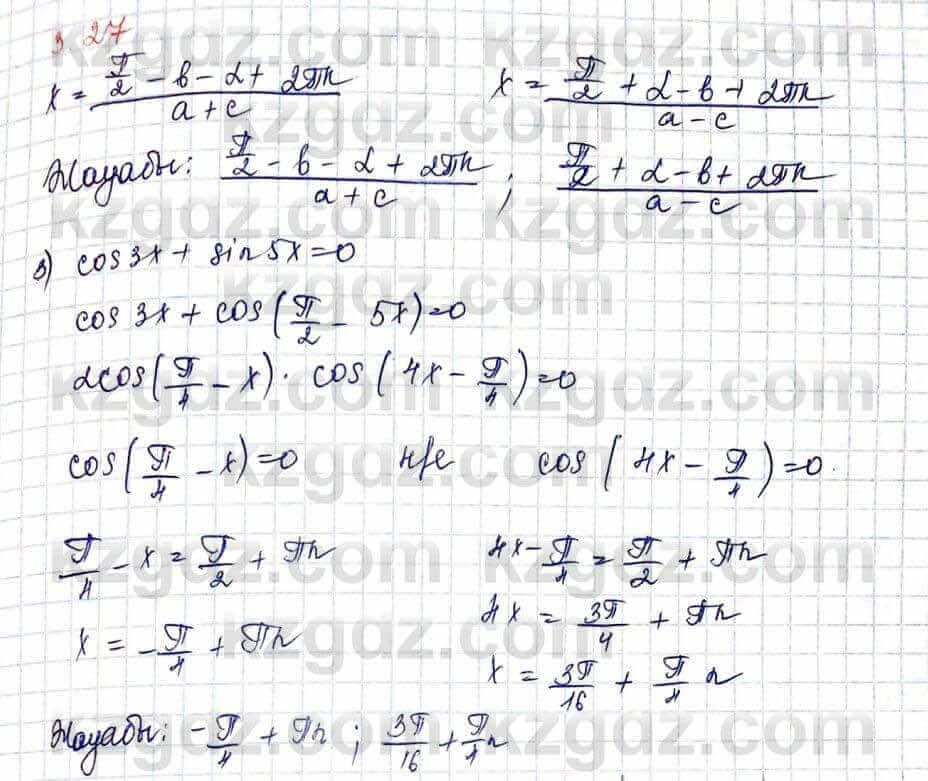 3.27
x = (π/2 - b - α + 2πn)/(a + c)    x = (π/2 + α - b + 2πn)/(a - c)
Жауабы: (π/2 - b - α + 2πn)/(a + c) ; (π/2 + α - b + 2πn)/(a - c)
3) cos 3x + sin 5x = 0
cos 3x + cos(π/2 - 5x) = 0
2cos(π/4 - x) · cos(4x - π/4) = 0
cos(π/4 - x) = 0    н/е    cos(4x - π/4) = 0.
π/4 - x = π/2 + πn    4x - π/4 = π/2 + πn
4x = 3π/4 + πn
x = -π/4 + πn    x = 3π/16 + π/4 n
Жауабы: -π/4 + πn ; 3π/16 + π/4 n
kzgdz.com